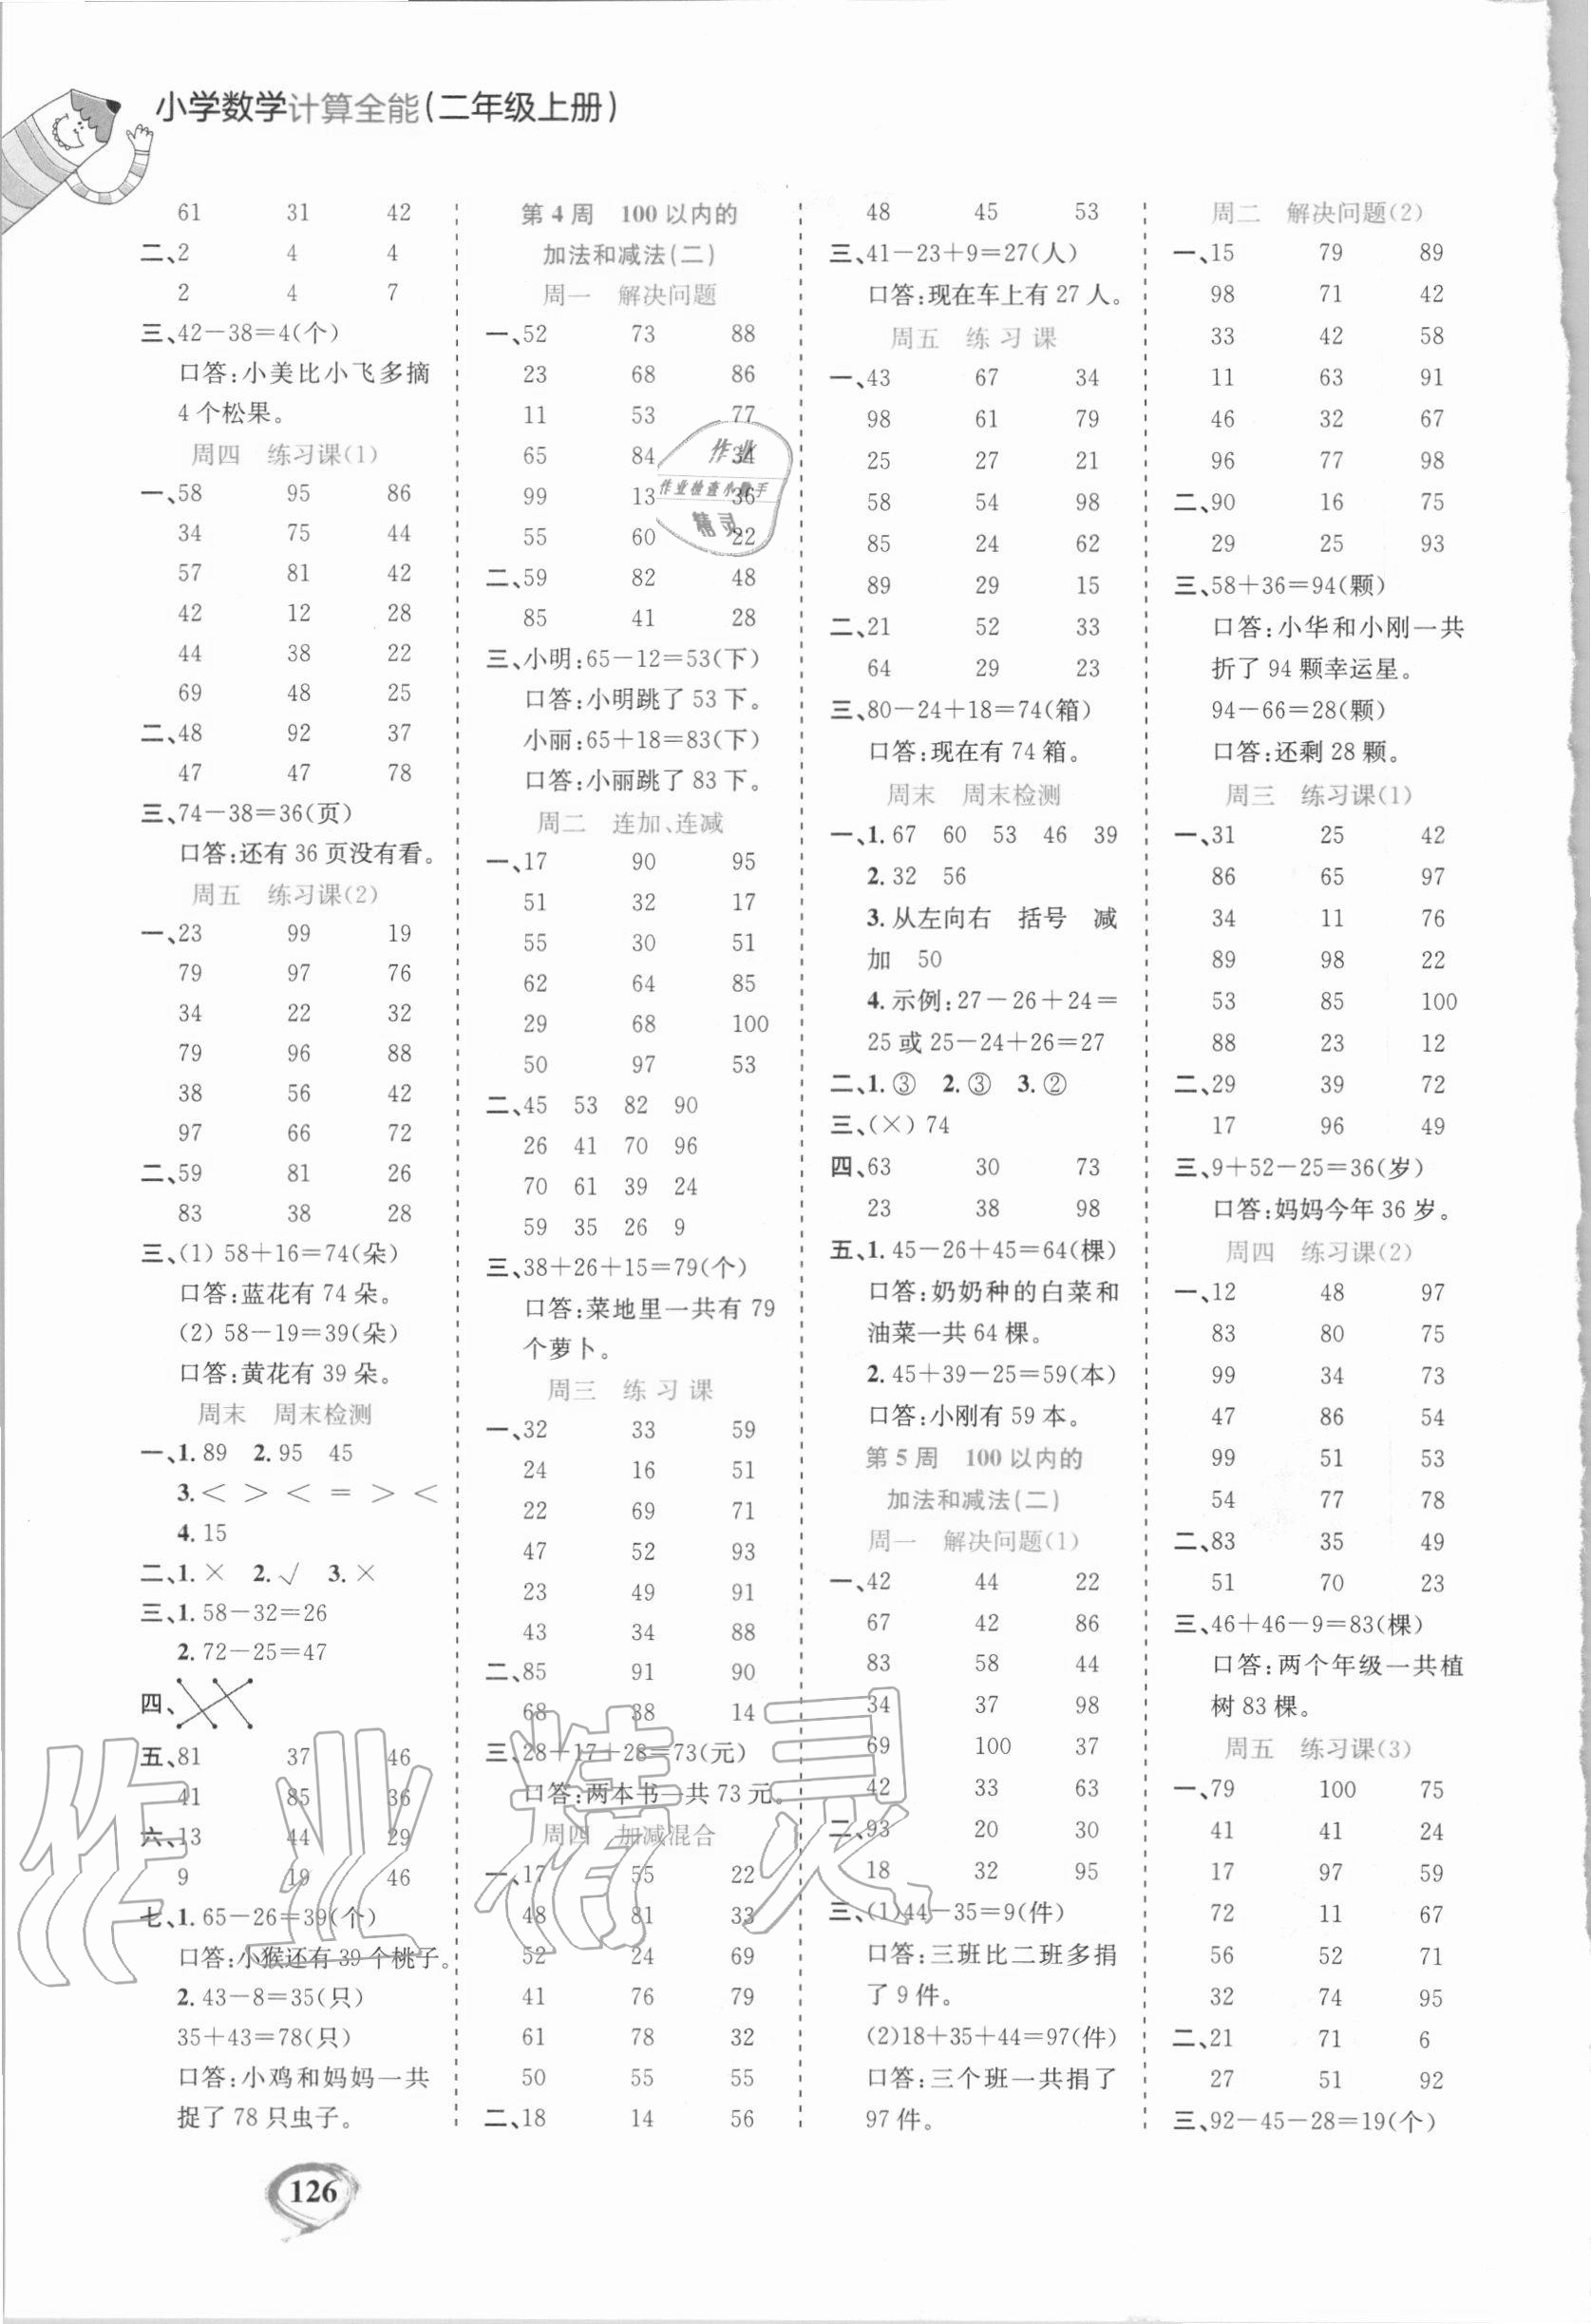 小学数学计算全能(二年级上册)
61 31 42
二、2 4 4
2 4 7
三、42－38＝4(个)
口答:小美比小飞多摘
4个松果。
周四 练习课(1)
一、58 95 86
34 75 44
57 81 42
42 12 28
44 38 22
69 48 25
二、48 92 37
47 47 78
三、74－38＝36(页)
口答:还有36页没有看。
周五 练习课(2)
一、23 99 19
79 97 76
34 22 32
79 96 88
38 56 42
97 66 72
二、59 81 26
83 38 28
三、(1) 58＋16＝74(朵)
口答:蓝花有74朵。
(2) 58－19＝39(朵)
口答:黄花有39朵。
周末 周末检测
一、1. 89 2. 95 45
3. ＜ ＞ ＜ ＝ ＞ ＜
4. 15
二、1. × 2. √ 3. ×
三、1. 58－32＝26
2. 72－25＝47
四、
五、81 37 46
41 85 36
六、13 44 29
9 19 46
七、1. 65－26＝39(个)
口答:小猴还有39个桃子。
2. 43－8＝35(只)
35＋43＝78(只)
口答:小鸡和妈妈一共
捉了78只虫子。
第4周 100以内的
加法和减法(二)
周一 解决问题
一、52 73 88
23 68 86
11 53 77
65 84 34
99 13 36
55 60 22
二、59 82 48
85 41 28
三、小明:65－12＝53(下)
口答:小明跳了53下。
小丽:65＋18＝83(下)
口答:小丽跳了83下。
周二 连加、连减
一、17 90 95
51 32 17
55 30 51
62 64 85
29 68 100
50 97 53
二、45 53 82 90
26 41 70 96
70 61 39 24
59 35 26 9
三、38＋26＋15＝79(个)
口答:菜地里一共有79
个萝卜。
周三 练习课
一、32 33 59
24 16 51
22 69 71
47 52 93
23 49 91
43 34 88
二、85 91 90
68 38 14
三、28＋17＋28＝73(元)
口答:两本书一共73元。
周四 加减混合
一、17 55 22
48 81 33
52 24 69
41 76 79
61 78 32
50 55 55
二、18 14 56
48 45 53
三、41－23＋9＝27(人)
口答:现在车上有27人。
周五 练习课
一、43 67 34
98 61 79
25 27 21
58 54 98
85 24 62
89 29 15
二、21 52 33
64 29 23
三、80－24＋18＝74(箱)
口答:现在有74箱。
周末 周末检测
一、1. 67 60 53 46 39
2. 32 56
3. 从左向右 括号 减
加 50
4. 示例:27－26＋24＝
25或25－24＋26＝27
二、1. ③ 2. ③ 3. ②
三、(×) 74
四、63 30 73
23 38 98
五、1. 45－26＋45＝64(棵)
口答:奶奶种的白菜和
油菜一共64棵。
2. 45＋39－25＝59(本)
口答:小刚有59本。
第5周 100以内的
加法和减法(二)
周一 解决问题(1)
一、42 44 22
67 42 86
83 58 44
34 37 98
69 100 37
42 33 63
二、93 20 30
18 32 95
三、(1)44－35＝9(件)
口答:三班比二班多捐
了9件。
(2)18＋35＋44＝97(件)
口答:三个班一共捐了
97件。
周二 解决问题(2)
一、15 79 89
98 71 42
33 42 58
11 63 91
46 32 67
96 77 98
二、90 16 75
29 25 93
三、58＋36＝94(颗)
口答:小华和小刚一共
折了94颗幸运星。
94－66＝28(颗)
口答:还剩28颗。
周三 练习课(1)
一、31 25 42
86 65 97
34 11 76
89 98 22
53 85 100
88 23 12
二、29 39 72
17 96 49
三、9＋52－25＝36(岁)
口答:妈妈今年36岁。
周四 练习课(2)
一、12 48 97
83 80 75
99 34 73
47 86 54
99 51 53
54 77 78
二、83 35 49
51 70 23
三、46＋46－9＝83(棵)
口答:两个年级一共植
树83棵。
周五 练习课(3)
一、79 100 75
41 41 24
17 97 59
72 11 67
56 52 71
32 74 95
二、21 71 6
27 51 92
三、92－45－28＝19(个)
126
作业
作业检查小助手
精灵
作业精灵